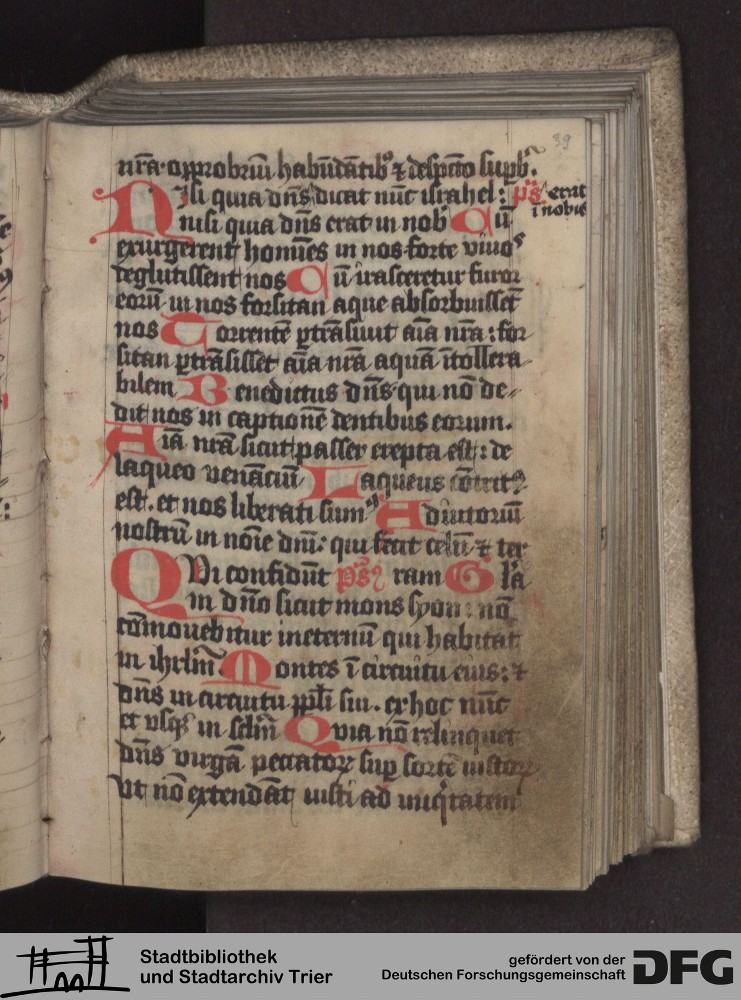 39
nr̄a · opprobriū habūdātibꝰ ⁊ despcō supbˢ.
Nisi quia dn̄s dicat nūc israhel : ps̄ erat
nisi quia dn̄s erat in nob Cū īnobis
exurgerent homīes in nos forte viuoˢ
deglutissent nos Cū irasceretur furor
eorū in nos forsitan aque absorbuissēt
nos Torrentē ꝑtrāsiuit aīa nr̄a : for
sitan ꝑtrāsisset aīa nr̄a aquā ītollera
bilem Benedictus dn̄s qui nō de-
dit nos in captionē dentibus eorum.
Aīa nr̄a sicut passer erepta est : de
laqueo venāciū Laqueus cōtritꝰ
est. et nos liberati sumꝰ Adiutoriū
nostrū in noīe dnī : qui fecit celū ⁊ ter
QVi confidūt ps̄ ram Gl'a
in dn̄o sicut mons syon : nō
cōmouebitur ineternū qui habitat
in ihrlm̄ Montes ī circuitu eius : ⁊
dn̄s in circuitu ppl̄i sui . ex hoc nūc
et vsqꝫ in sclm̄ Quia nō relinquet
dn̄s virgā peccatoꝝ suꝑ sortē iustoꝝ
Vt nō extendāt iusti ad iniqͥtatem
Stadtbibliothek
und Stadtarchiv Trier
gefördert von der
Deutschen Forschungsgemeinschaft
DFG